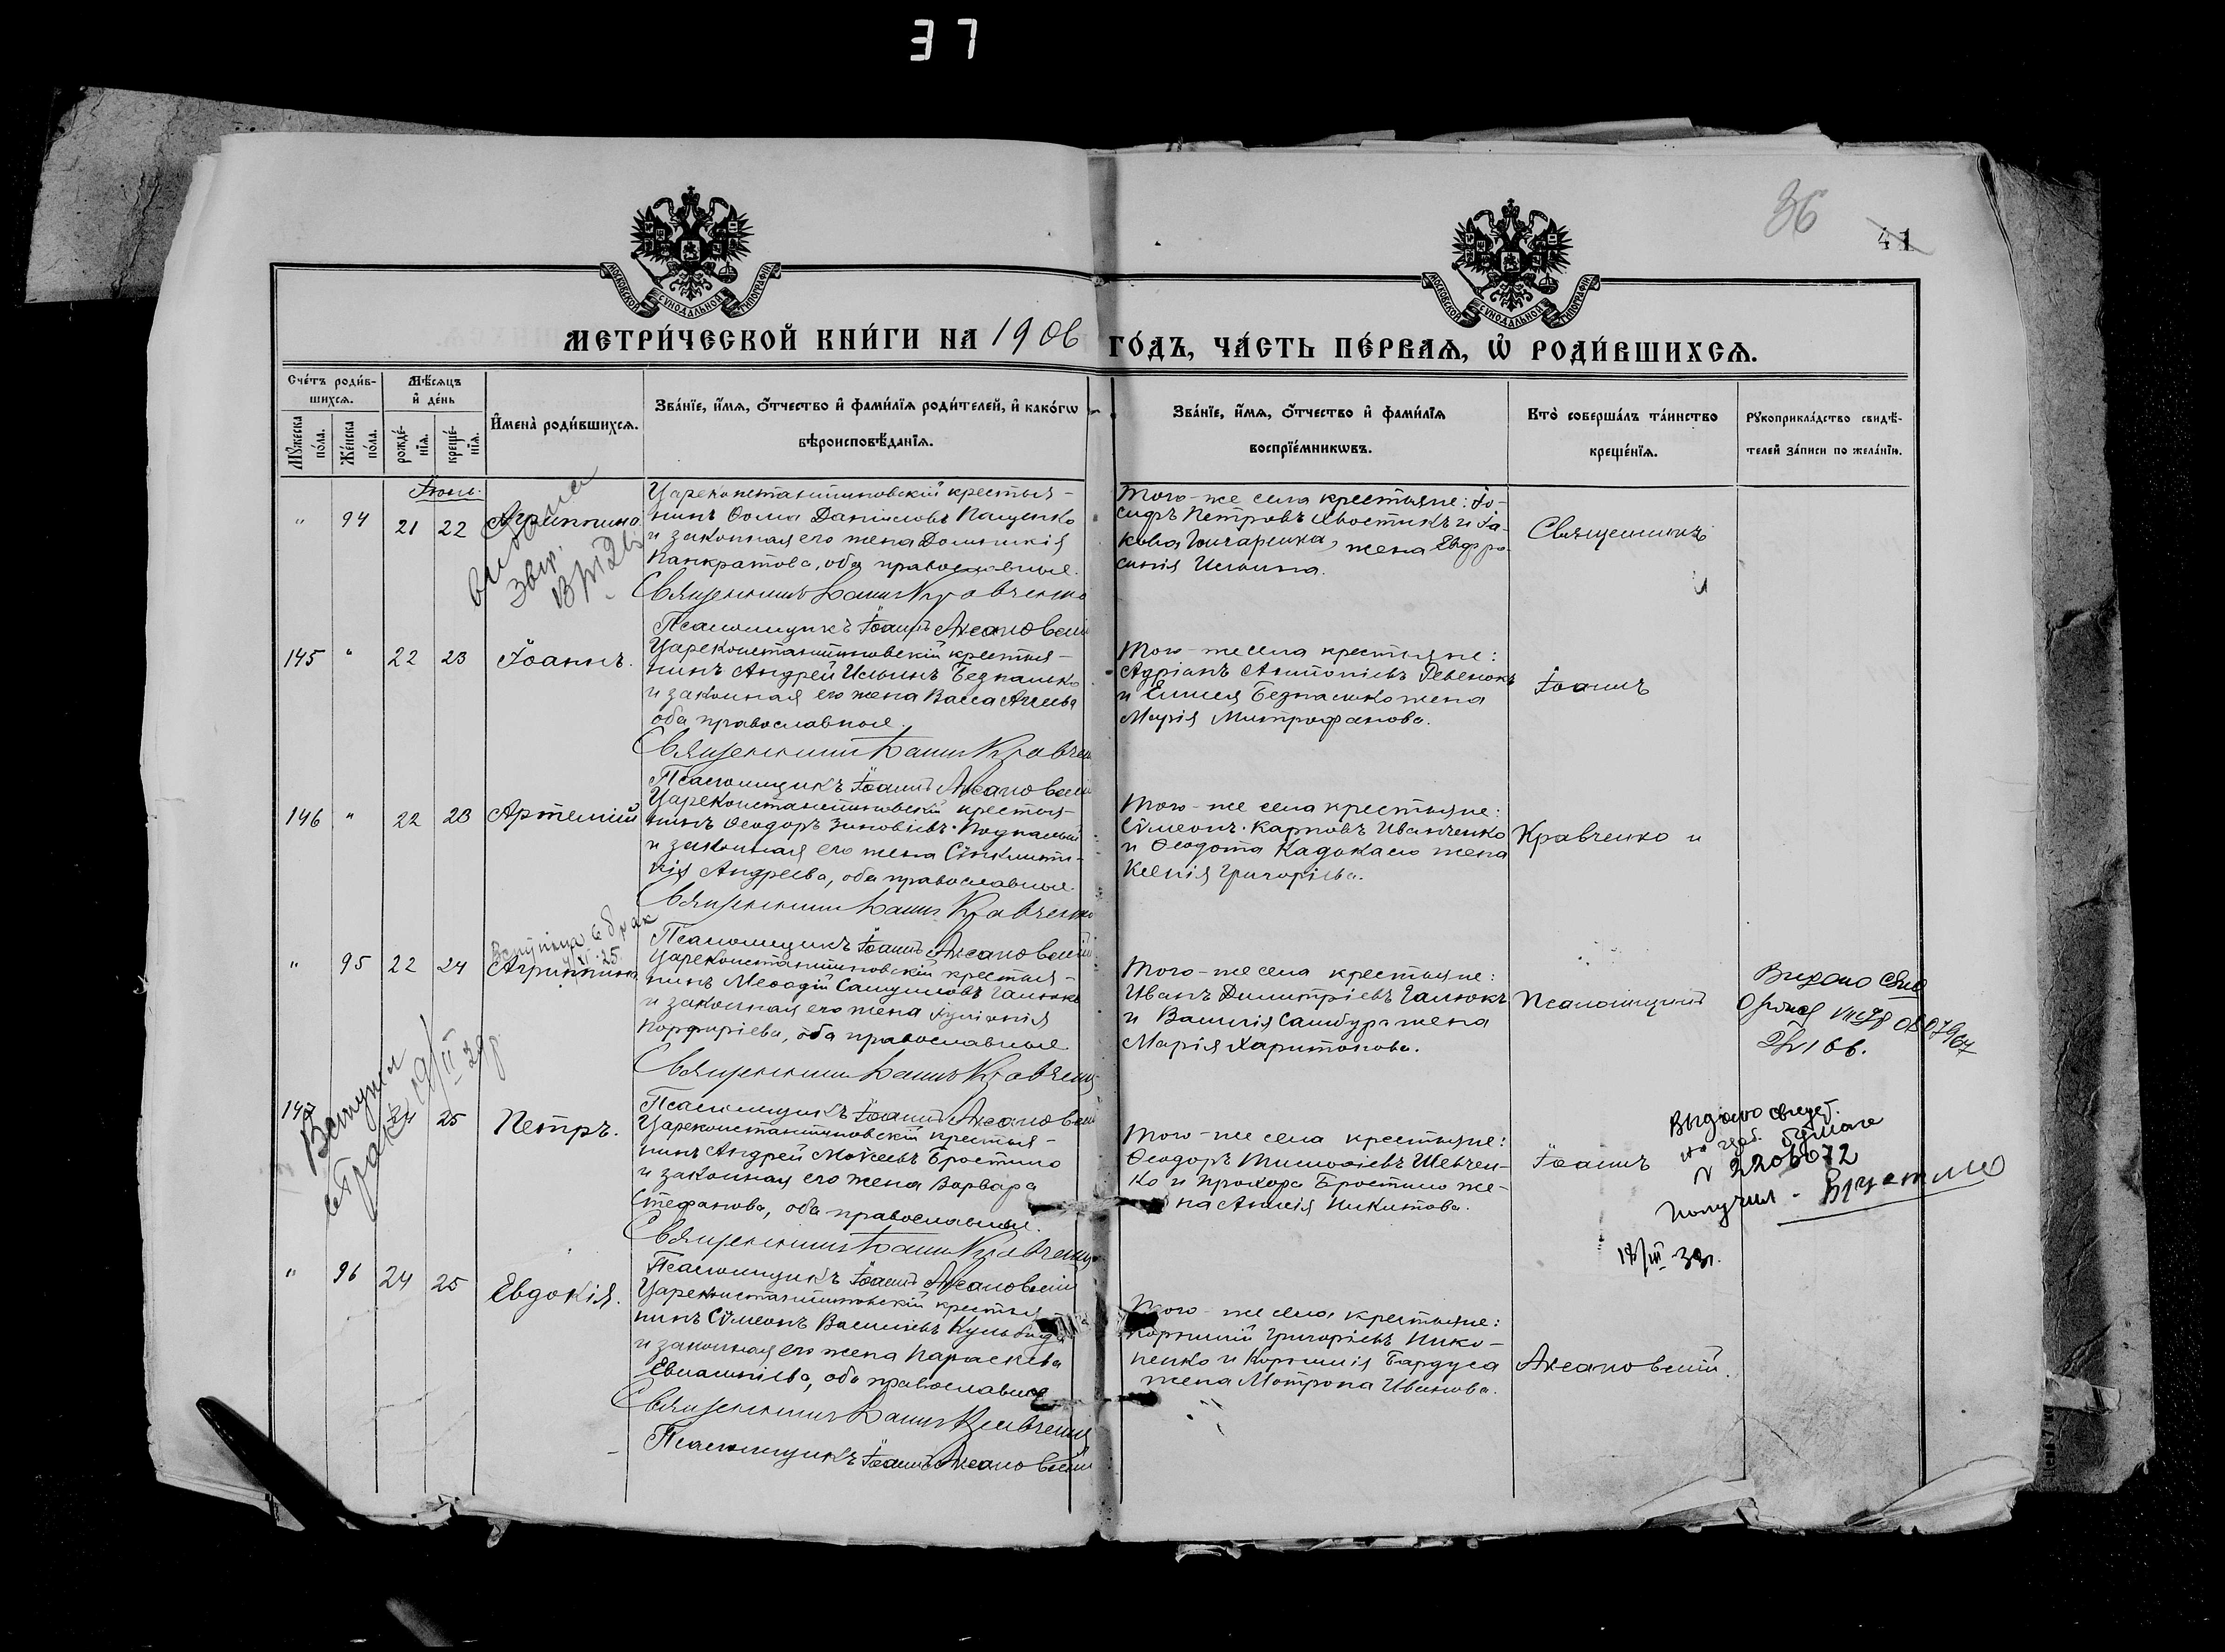 37
36
41
МОСКОВСКОЙ СУНОДАЛЬНОЙ ТИПОГРАФІИ
МОСКОВСКОЙ СУНОДАЛЬНОЙ ТИПОГРАФІИ
МЕТРИ́ЧЕСКОЙ КНИ́ГИ НА 1906 ГО́ДЪ, ЧА́СТЬ ПЕ́РВАЯ, Ѡ҆ РОДИ́ВШИХСЯ.
Сче́тъ роди́в-
шихся.
Мѣ́сяцъ
и҆ де́нь
Мꙋ́жеска по́ла.
Же́нска по́ла.
рожде́-
нїя.
креще́-
нїя.
И҆мена̀ роди́вшихся.
Зва́нїе, и҆́мя, ѻ҆́тчество и҆ фами́лїя роди́телей, и҆ како́гѡ
вѣроисповѣ́данїя.
Зва́нїе, и҆́мя, ѻ҆́тчество и҆ фами́лїя
воспрїе́мникѡвъ.
Кто̀ соверша́лъ та́инство
креще́нїя.
Рꙋкоприкла́дство свидѣ́-
телей за́писи по жела́нїю.
Іюнь.
" 94 21 22 Агриппина
Цареконстантиновскій крестья-
нинъ Ѳома Даніиловъ Пащенко
и законная его жена Домникія
Панкратова, оба православные.
Священникъ Іоаннъ Кравченко
Псаломщикъ Іоаннъ Аксановскій
Того-же села крестьяне: Іо-
сифъ Петровъ Хвостикъ и Іа-
кова Гончаренка, жена Евфро-
синія Ильина.
Священникъ
145 " 22 23 Іоаннъ.
Цареконстантиновскій крестья-
нинъ Андрей Ильинъ Безпалько
и законная его жена Васса
оба православные.
Священникъ Іоаннъ Кравченко
Псаломщикъ Іоаннъ Аксановскій
Того-же села крестьяне:
Адріанъ Антоніевъ Ревенокъ
и Безпалько жена
Марія Митрофанова.
Іоаннъ
146 " 22 23 Артемій
Цареконстантиновскій крестья-
нинъ Ѳеодоръ Зиновіевъ
и законная его жена Синклити-
кія Андреева, оба православные.
Священникъ Іоаннъ Кравченко
Псаломщикъ Іоаннъ Аксановскій
Того-же села крестьяне:
Сѵмеонъ Карповъ Иванченко
и Ѳеодота жена
Ксенія Григоріева.
Кравченко и
" 95 22 24 Агриппина
Цареконстантиновскій крестья-
нинъ Меѳодій Самуиловъ Галюкъ
и законная его жена Іуліанія
Порфиріева, оба православные.
Священникъ Іоаннъ Кравченко
Псаломщикъ Іоаннъ Аксановскій
Того-же села крестьяне:
Иванъ Димитріевъ Галюкъ
и Василія Самбура жена
Марія Харитонова.
Псаломщикъ
Выдано
24 25 Петръ.
Цареконстантиновскій крестья-
нинъ Андрей Моѵсеевъ Бростило
и законная его жена Варвара
Стефанова, оба православные.
Священникъ Іоаннъ Кравченко
Псаломщикъ Іоаннъ Аксановскій
Того-же села крестьяне:
Ѳеодоръ Тимоѳіевъ Шевчен-
ко и Прохора Бростило же-
на Анисія Никитова.
Іоаннъ
Выдано свидет.
бумаге
№ 2206672
Получил
18/III 33г.
" 96 24 25 Евдокія.
Цареконстантиновскій крестья-
нинъ Сѵмеонъ Васильевъ Кульбида
и законная его жена Параскева
оба православные
Священникъ Іоаннъ Кравченко
Псаломщикъ Іоаннъ Аксановскій
Того-же села крестьяне:
Корнилій Григоріевъ Нико-
ненко и Корнилія Бардуса
жена Матрона Иванова.
Аксановскій.